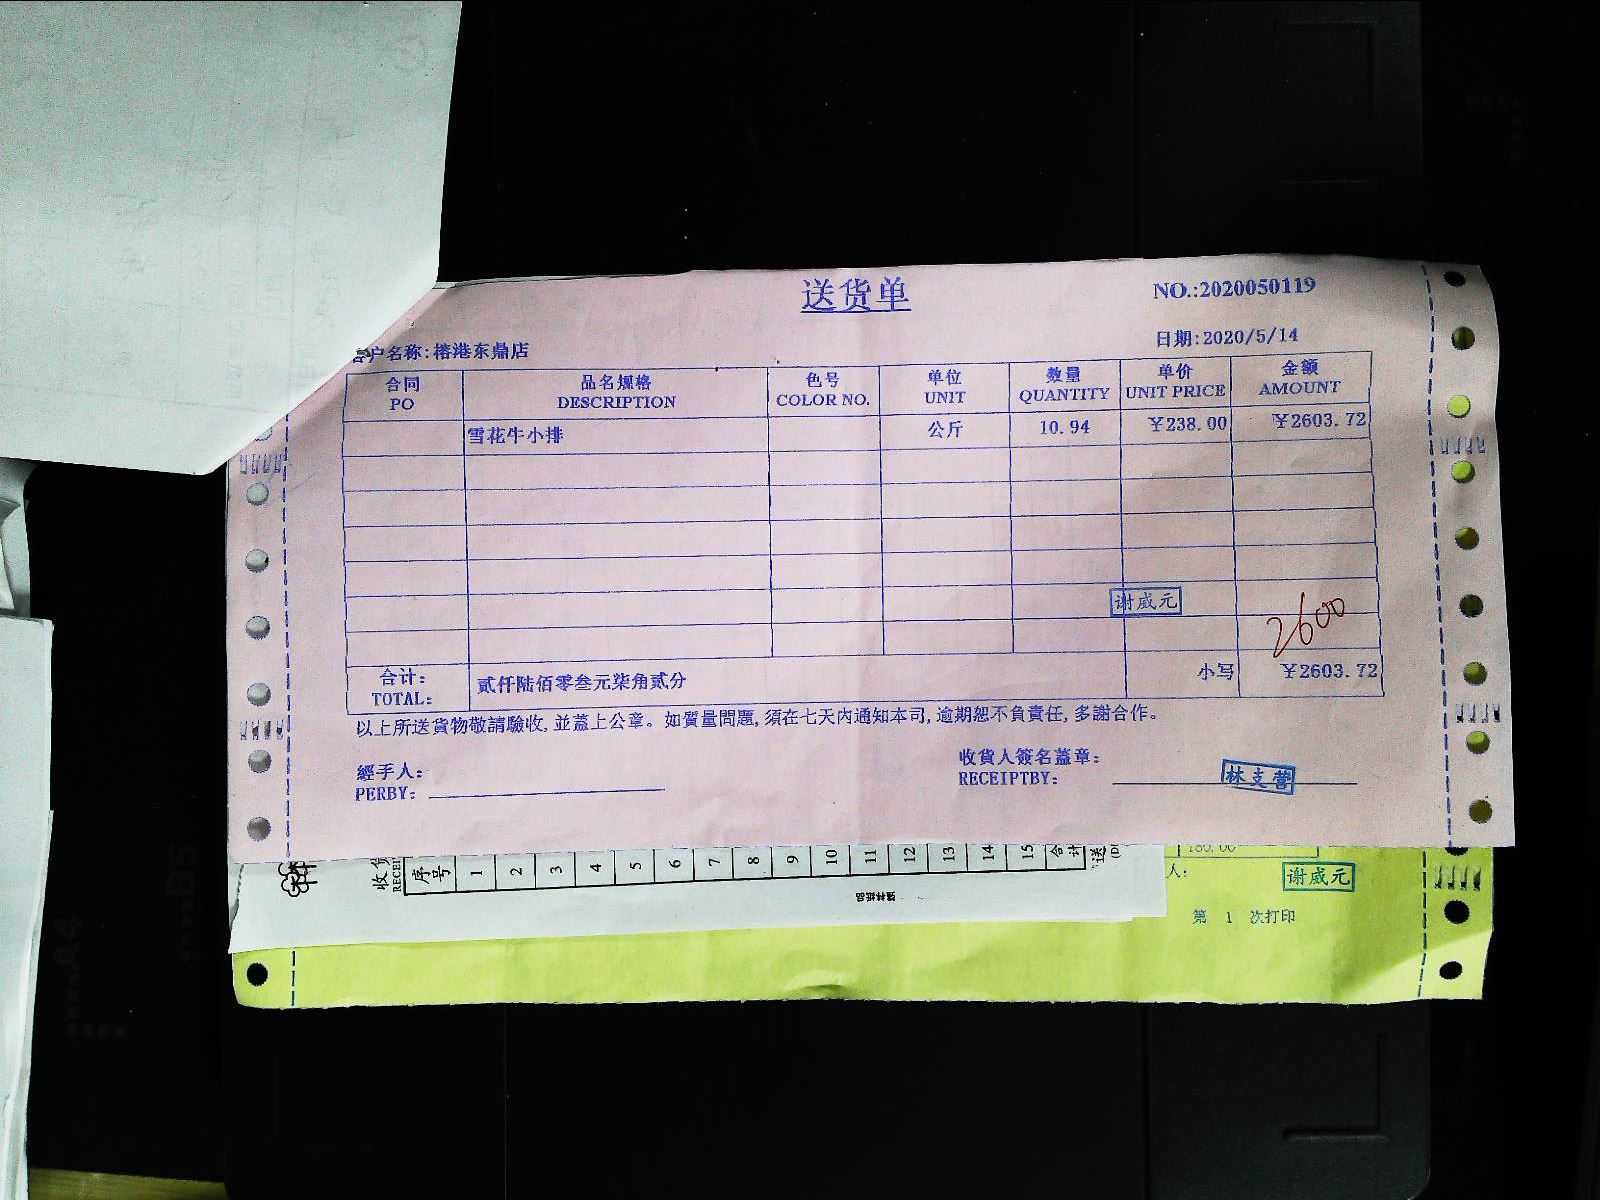 送货单
NO.:2020050119
客户名称:榕港东鼎店
日期:2020/5/14
合同 品名规格 色号 单位 数量 单价 金额
PO DESCRIPTION COLOR NO. UNIT QUANTITY UNIT PRICE AMOUNT
雪花牛小排 公斤 10.94 ¥238.00 ¥2603.72
谢威元
2600
合计: 贰仟陆佰零叁元柒角贰分 小写 ¥2603.72
TOTAL:
以上所送貨物敬請驗收,並蓋上公章。如質量問題,須在七天内通知本司,逾期恕不負責任,多謝合作。
經手人: 收貨人簽名蓋章:
PERBY: RECEIPTBY: 林支营
收货
RECEI
序号 1 2 3 4 5 6 7 8 9 10 11 12 13 14 15 合计
送
(D
180.00
人: 谢威元
第 1 次打印